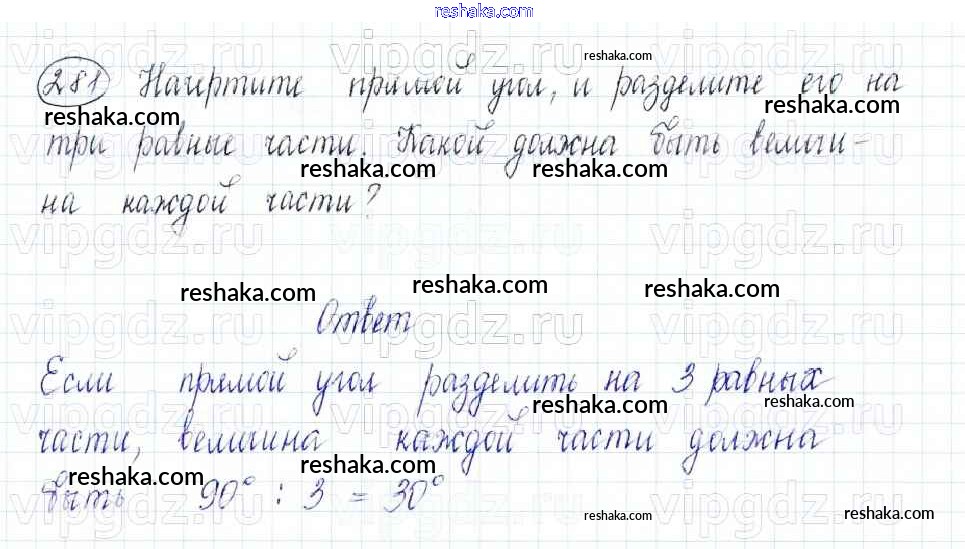 reshaka.com
281 Начертите прямой угол, и разделите его на
три равные части. Какой должна быть величи-
на каждой части?
Ответ
Если прямой угол разделить на 3 равных
части, величина каждой части должна
быть 90° : 3 = 30°